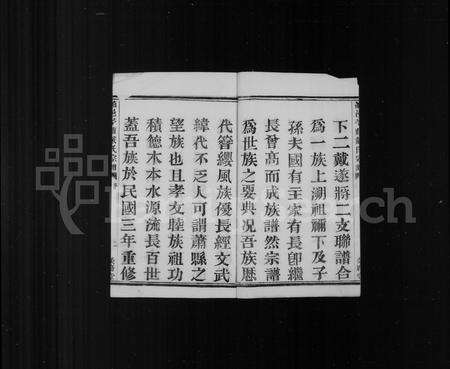 下二戴遂將二支聯譜合
爲一族上溯祖禰下及子
孫夫國有主家有長卽繼
長曾高而成族譜然宗譜
爲世族之要典况吾族歷
代簪纓風族優長經文武
緯代不乏人可謂蕭縣之
望族也且孝友睦族祖功
積德木本水源流長百世
蓋吾族於民國三年重修